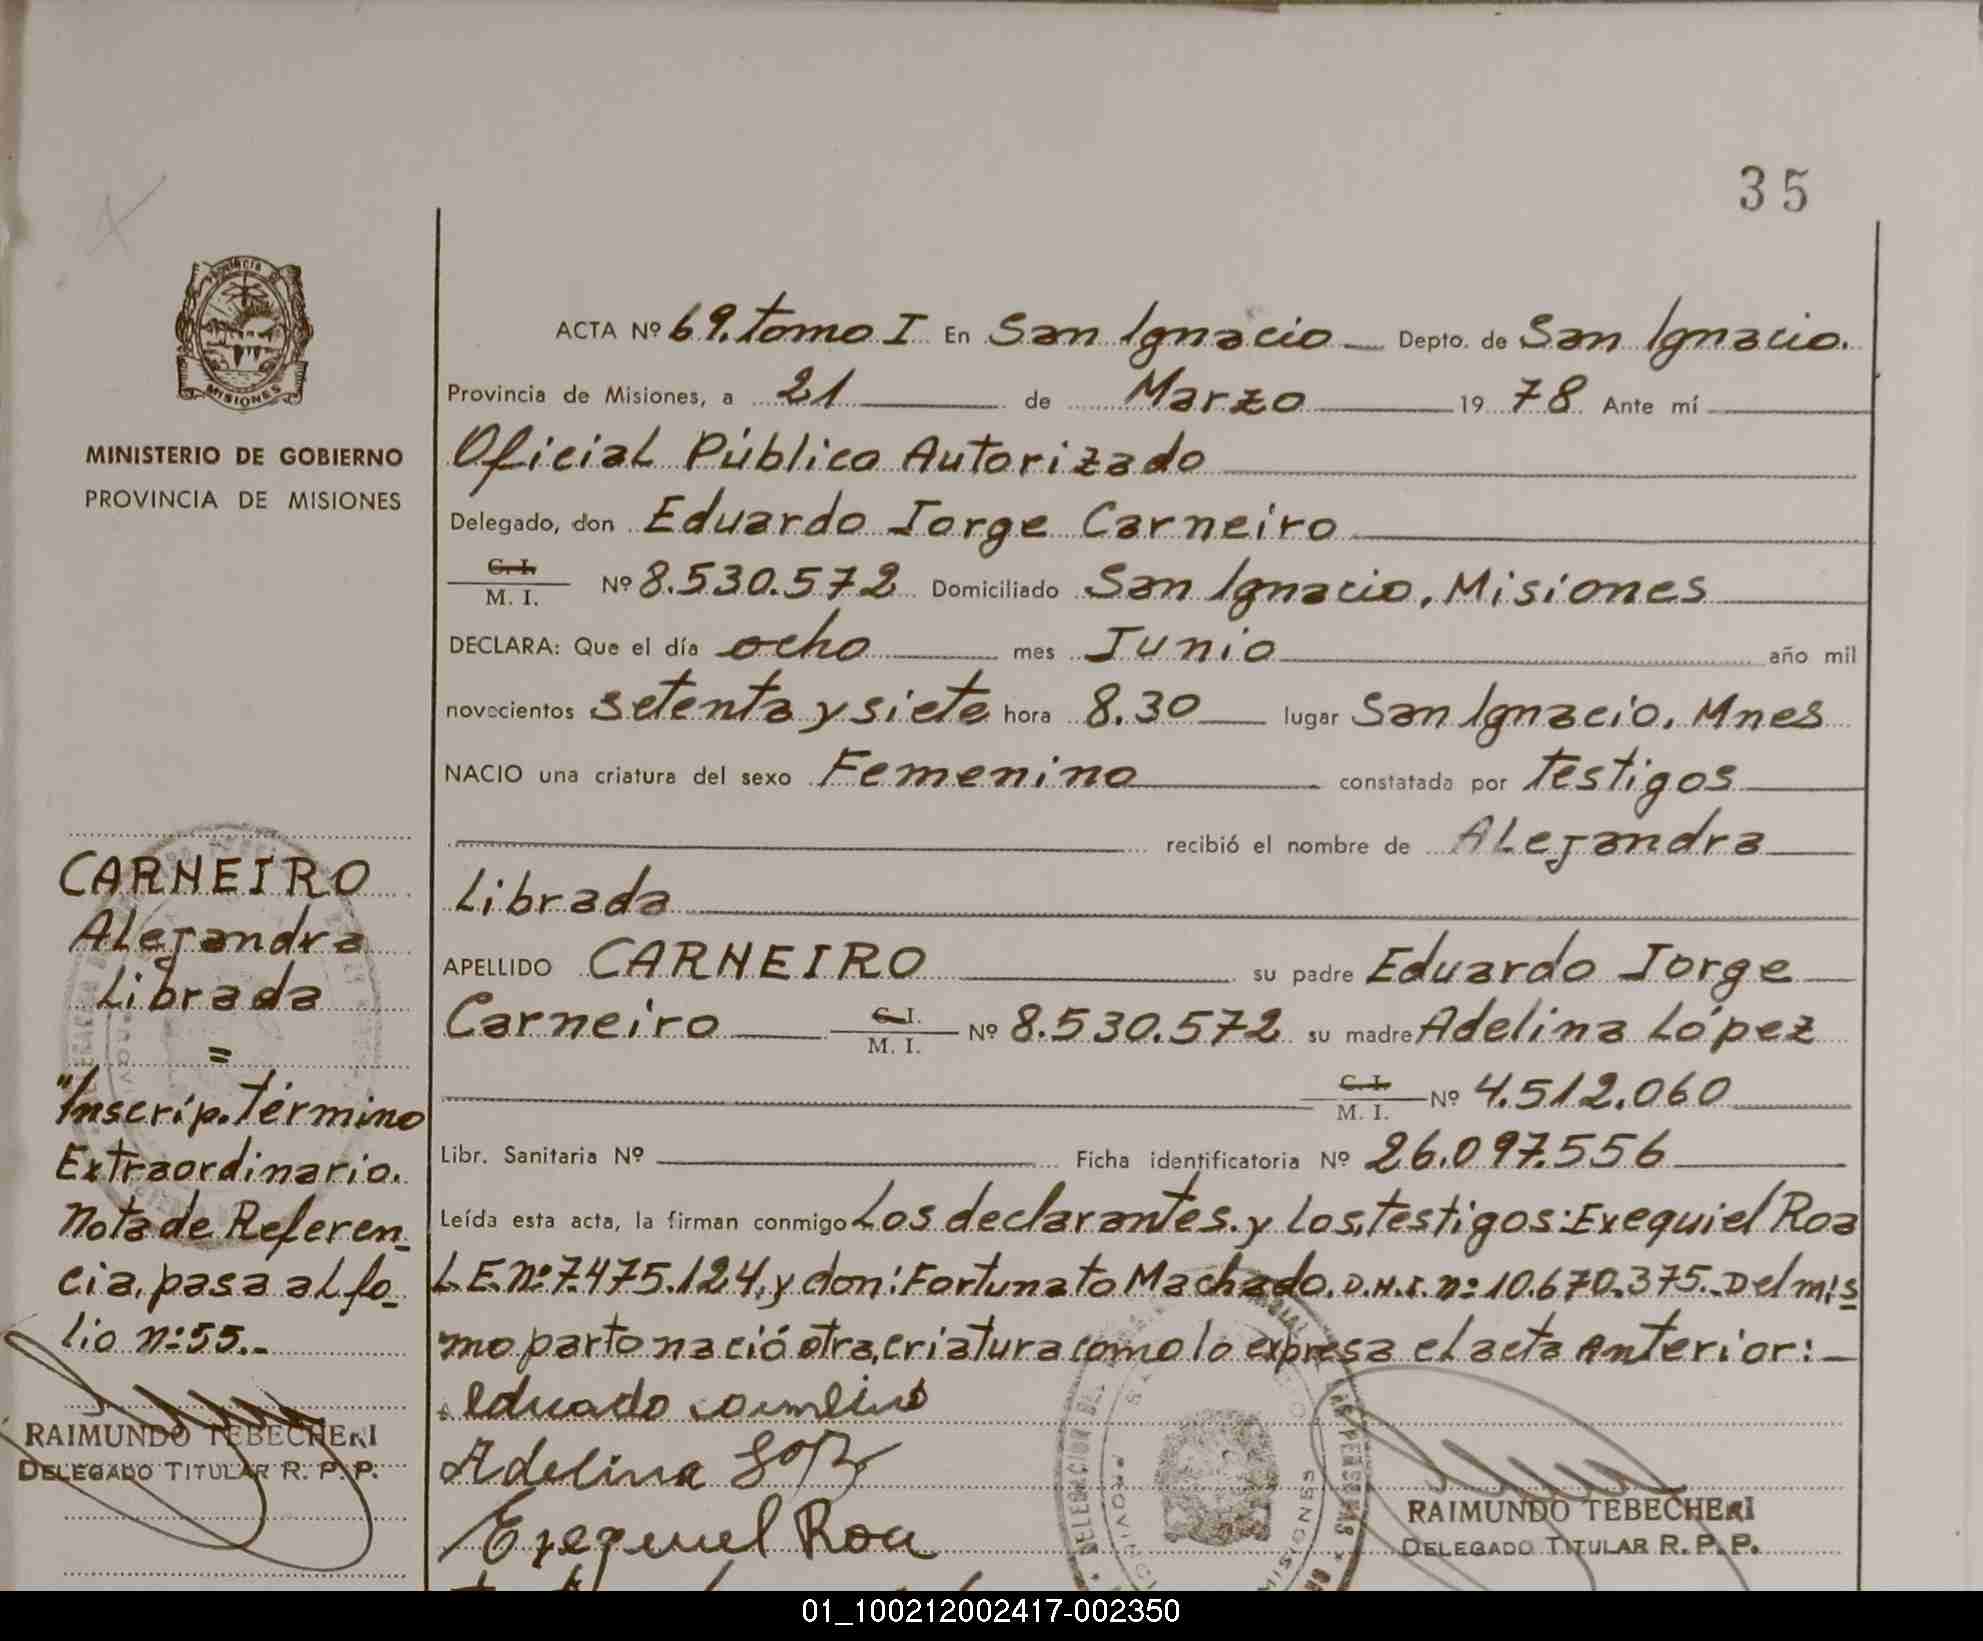 35
Provincia
MISIONES
MINISTERIO DE GOBIERNO
PROVINCIA DE MISIONES
ACTA Nº 69. tomo I En San Ignacio Depto. de San Ignacio.
Provincia de Misiones, a 21 de Marzo 19 78 Ante mí
Oficial Público Autorizado
Delegado, don Eduardo Jorge Carneiro
C. I.
M. I. Nº 8.530.572 Domiciliado San Ignacio, Misiones
DECLARA: Que el día ocho mes Junio año mil
novecientos setenta y siete hora 8.30 lugar San Ignacio. Mnes
NACIO una criatura del sexo Femenino constatada por testigos
recibió el nombre de Alejandra
Librada
APELLIDO CARNEIRO su padre Eduardo Jorge
Carneiro C. I.
M. I. Nº 8.530.572 su madre Adelina López
C. I.
M. I. Nº 4.512.060
Libr. Sanitaria Nº Ficha identificatoria Nº 26.097.556
Leída esta acta, la firman conmigo Los declarantes. y Los, testigos: Exequiel Roa
L.E. nº: 7.475.124, y don: Fortunato Machado. D.N.I. nº: 10.670.375. Del mis
mo parto nació otra, criatura como lo expresa el acta Anterior: —
Adelina
Ezequiel Roa
RAIMUNDO TEBECHERI
DELEGADO TITULAR R. P. P.
CARNEIRO
Alejandra
Librada
=
"Inscrip. Término
Extraordinario.
Nota de Referen_
cia, pasa al fo_
lio nº: 55._
RAIMUNDO TEBECHERI
DELEGADO TITULAR R. P. P.
01_100212002417-002350